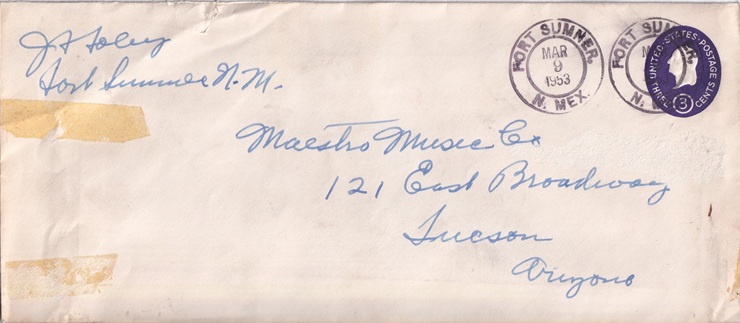 J A Foley
Fort Sumner N.M.
FORT SUMNER,
MAR
9
1953
N. MEX.
FORT SUMNER,
M
N. M
UNITED·STATES·POSTAGE
THREE 3 CENTS
Maestro Music Co
121 East Broadway
Tucson
Arizona